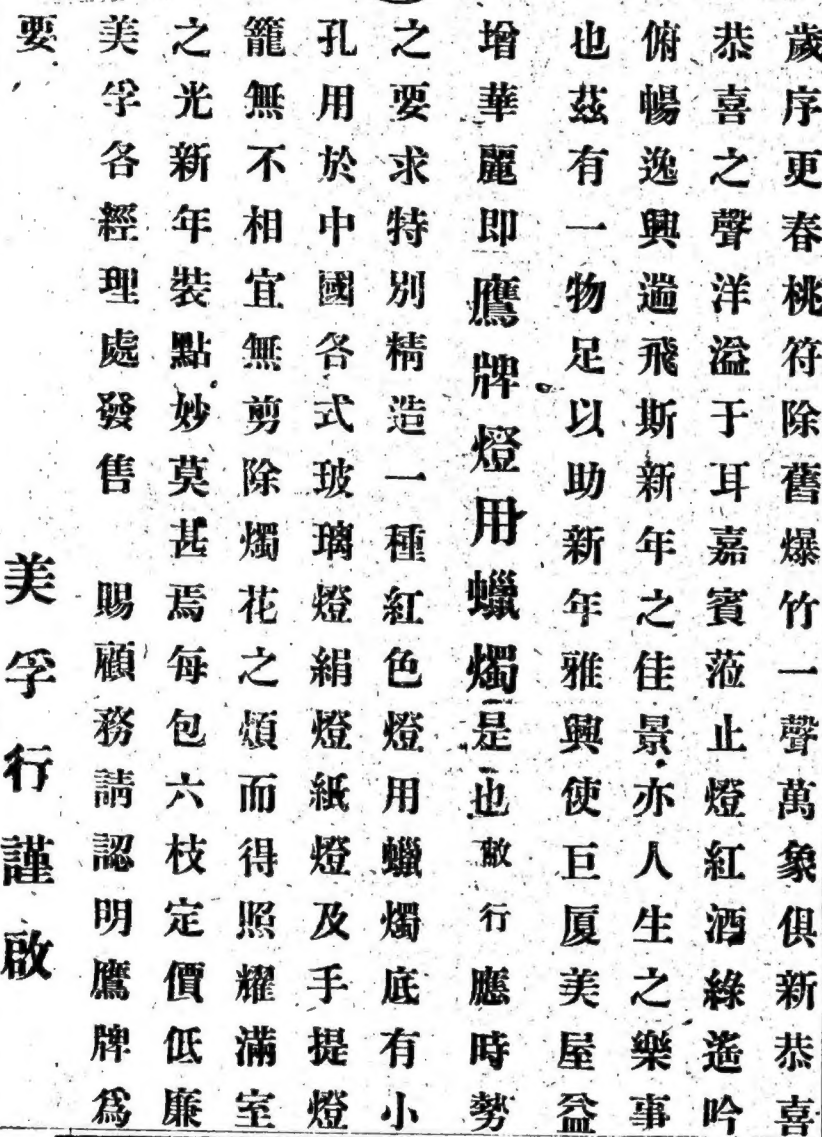 歲序更春桃符除舊爆竹一聲萬象俱新恭喜
恭喜之聲洋溢于耳嘉賓蒞止燈紅酒綠遙吟
俯暢逸興遄飛斯新年之佳景亦人生之樂事
也茲有一物足以助新年雅興使巨厦美屋益
增華麗即鷹牌燈用蠟燭是也敝行應時勢
之要求特別精造一種紅色燈用蠟燭底有小
孔用於中國各式玻璃燈絹燈紙燈及手提燈
籠無不相宜無剪除燭花之煩而得照耀滿室
之光新年裝點妙莫甚焉每包六枝定價低廉
美孚各經理處發售 賜顧務請認明鷹牌爲
要
美孚行謹啟